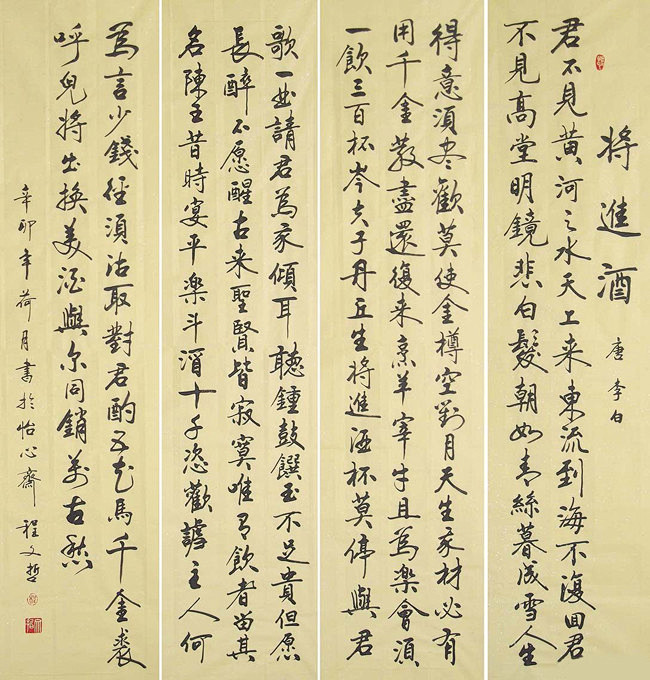 將進酒
唐李白
君不見黄河之水天上来東流到海不復回君
不見高堂明鏡悲白髮朝如青絲暮成雪人生
得意須尽歡莫使金樽空對月天生我材必有
用千金散盡還復来烹羊宰牛且為楽會須
一飲三百杯岑夫子丹丘生將進酒杯莫停與君
歌一曲請君為我傾耳聽鍾鼓饌玉不足貴但愿
長醉不愿醒古来聖賢皆寂寞唯有飲者留其
名陳王昔時宴平楽斗酒十千恣歡謔主人何
為言少錢径須沽取對君酌五花馬千金裘
呼兒將出換美酒與尔同銷萬古愁
辛卯年荷月書於怡心齋程文哲